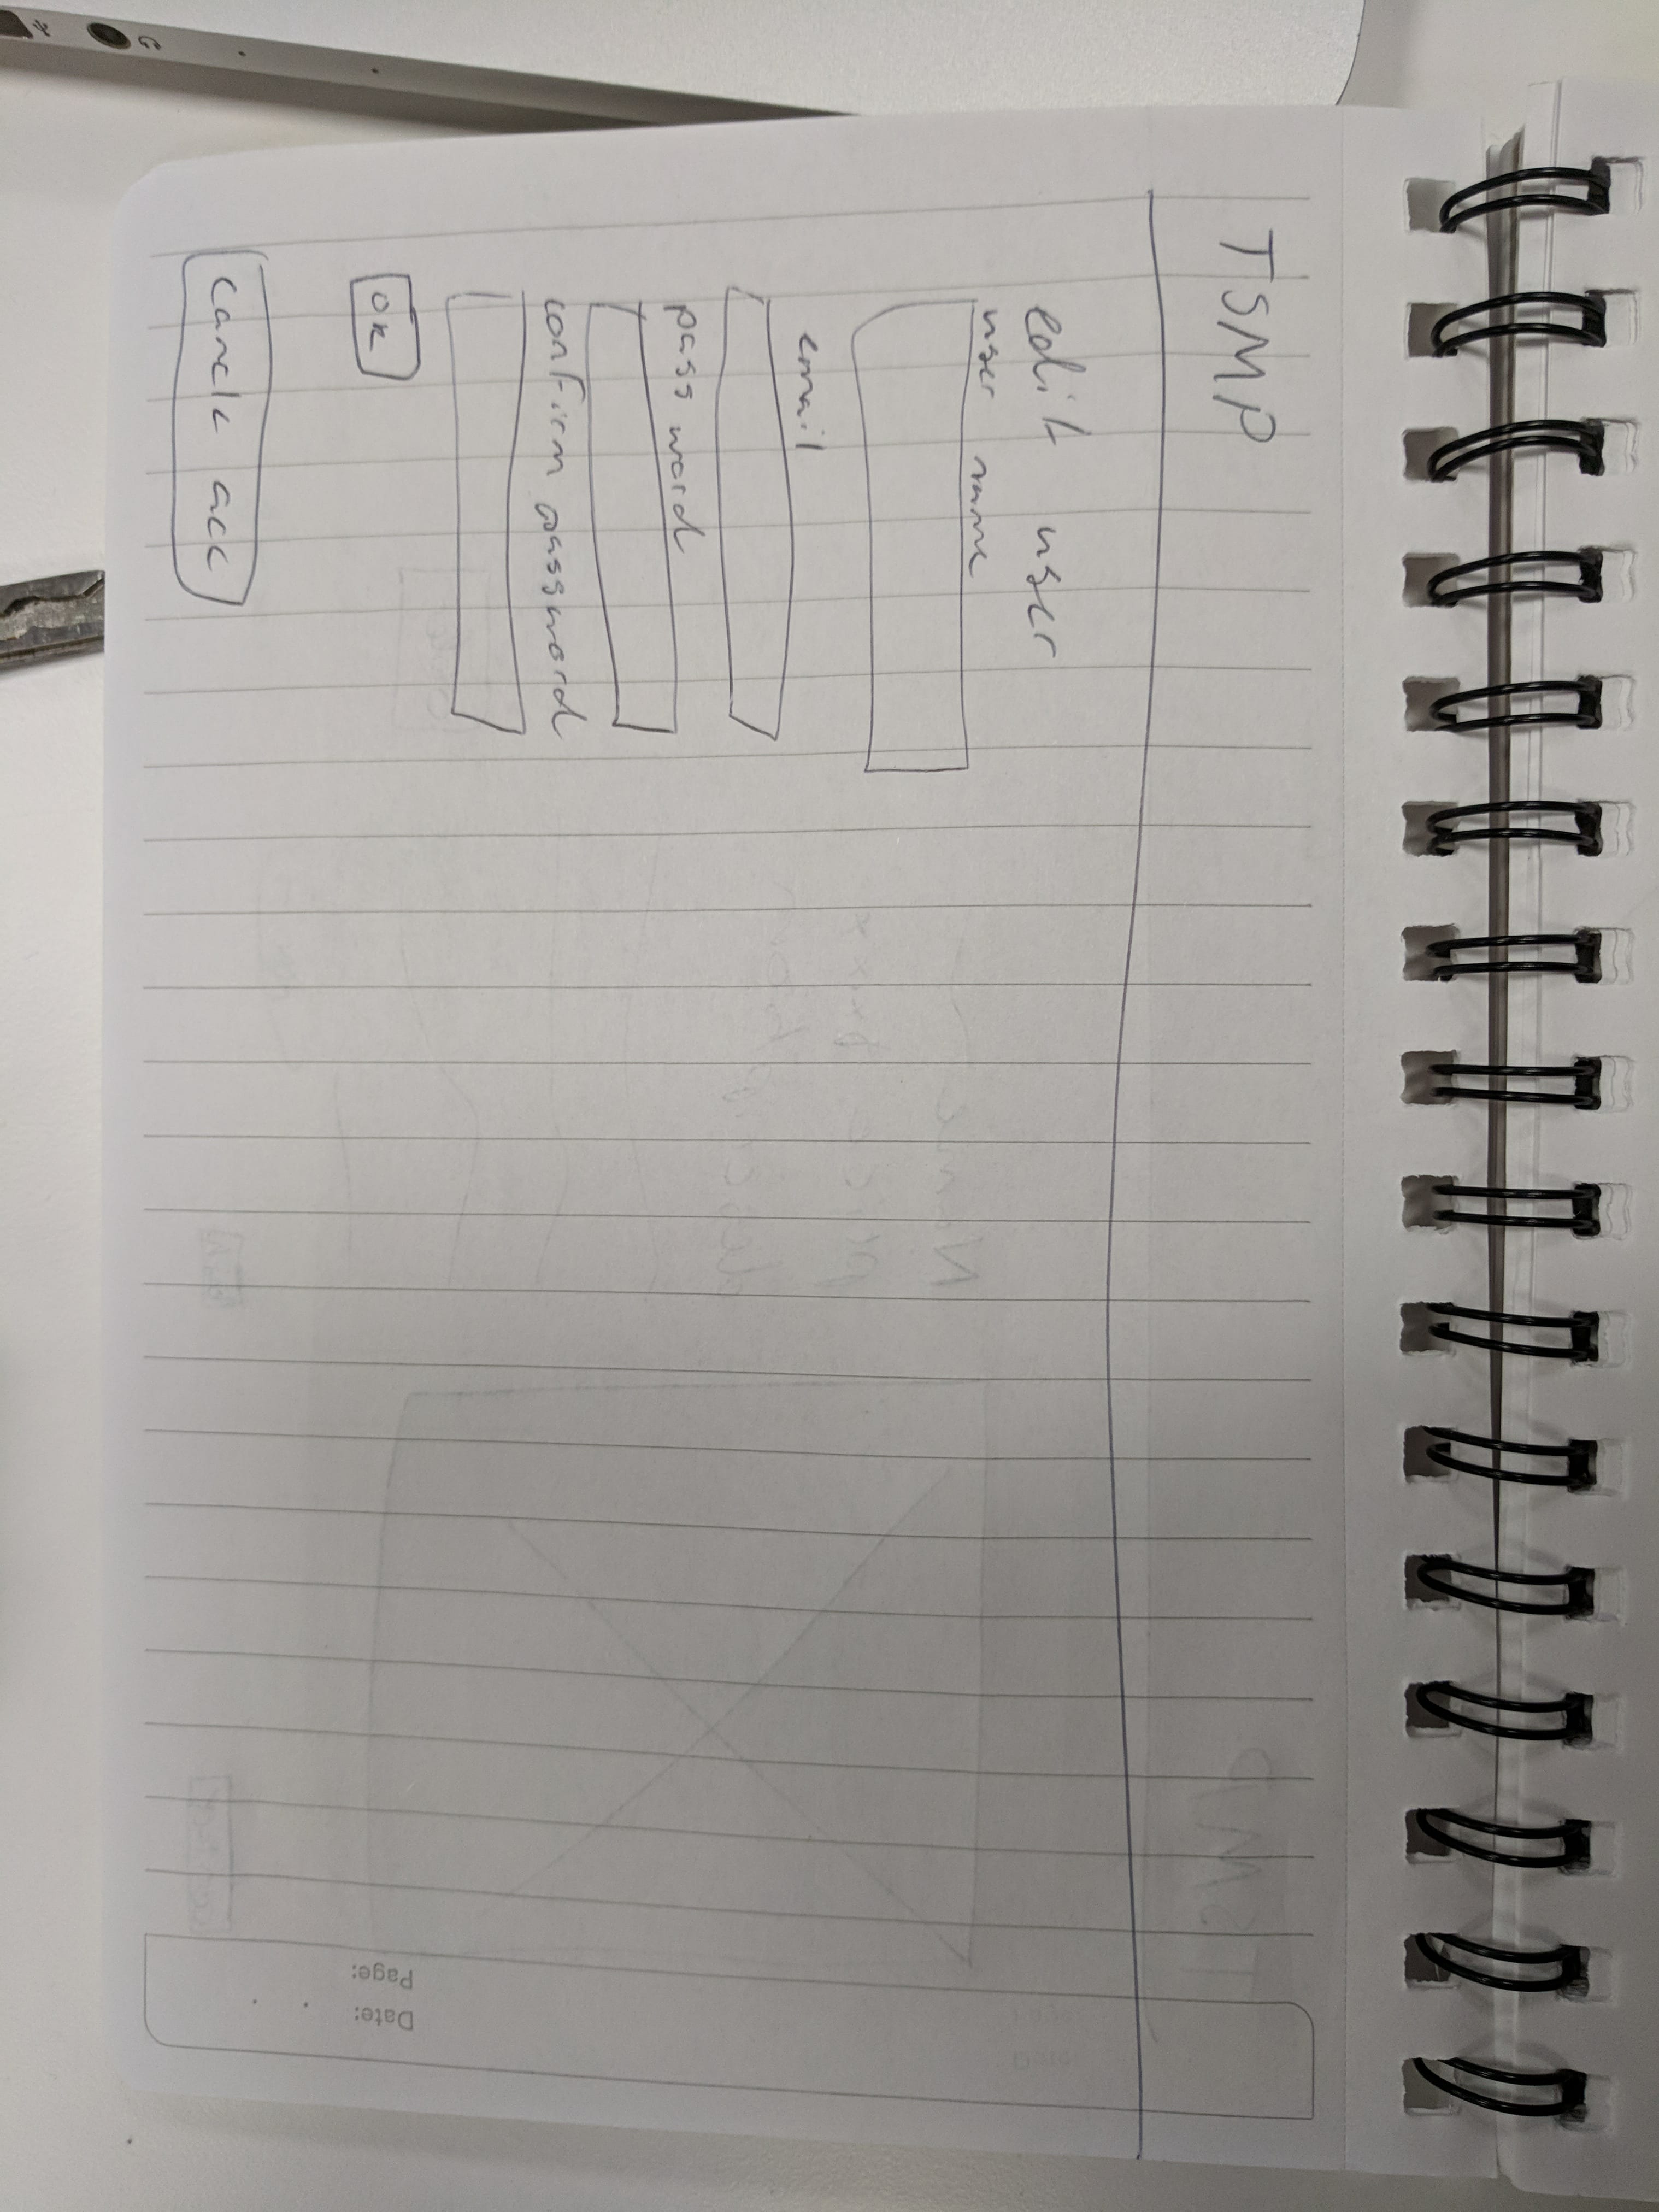 TSMP
edit user
user name
email
pass word
confirm password
OK
cancle acc
Page:
Date: